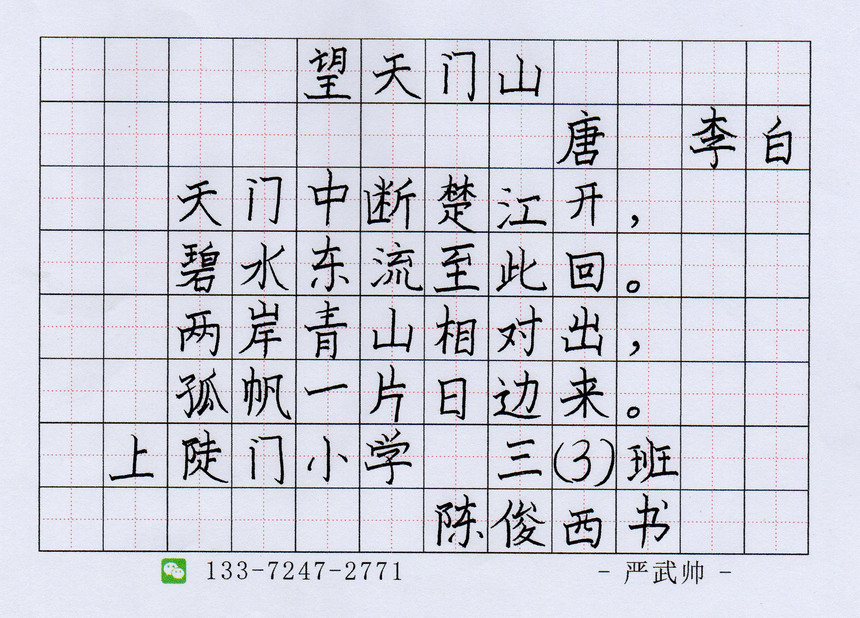 望天门山
唐 李白
天门中断楚江开，
碧水东流至此回。
两岸青山相对出，
孤帆一片日边来。
上陡门小学 三(3)班
陈俊西书
133-7247-2771 - 严武帅 -